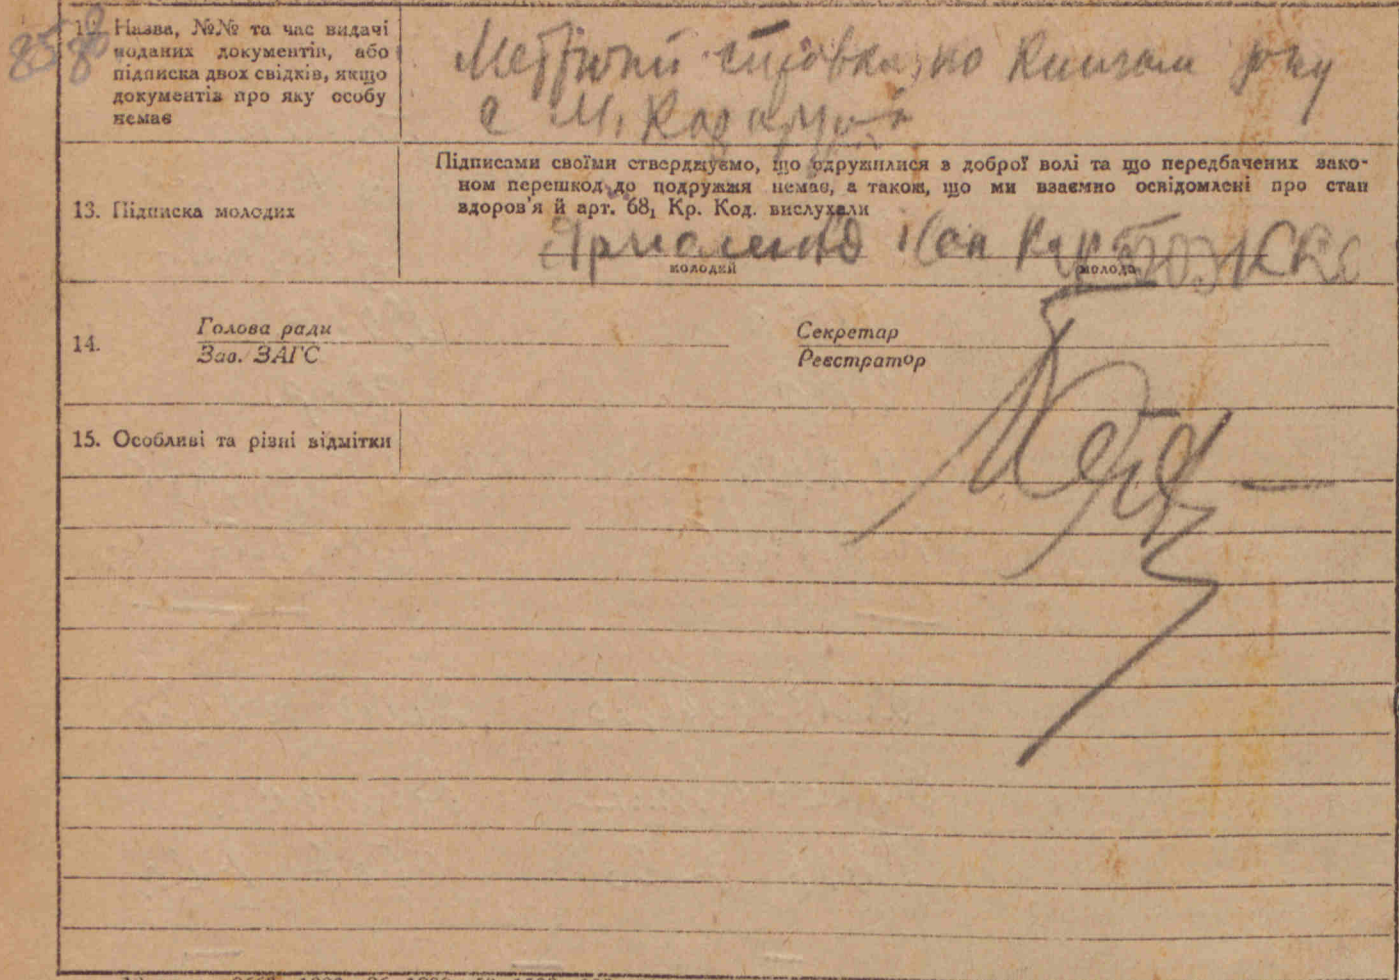 12. Назва, №№ та час видачі
поданих документів, або
підписка двох свідків, якщо
документів про яку особу
немає
по книгам
с М.
13. Підписка молодих
Підписами своїми стверджуємо, що одружилися з доброї волі та що передбачених зако-
ном перешкод до подружжя немає, а також, що ми взаємно освідомлені про стан
здоров'я й арт. 68₁ Кр. Код. вислухали
молодий молода
14.
Голова ради
Зав. ЗАГС
Секретар
Реєстратор
15. Особливі та різні відмітки